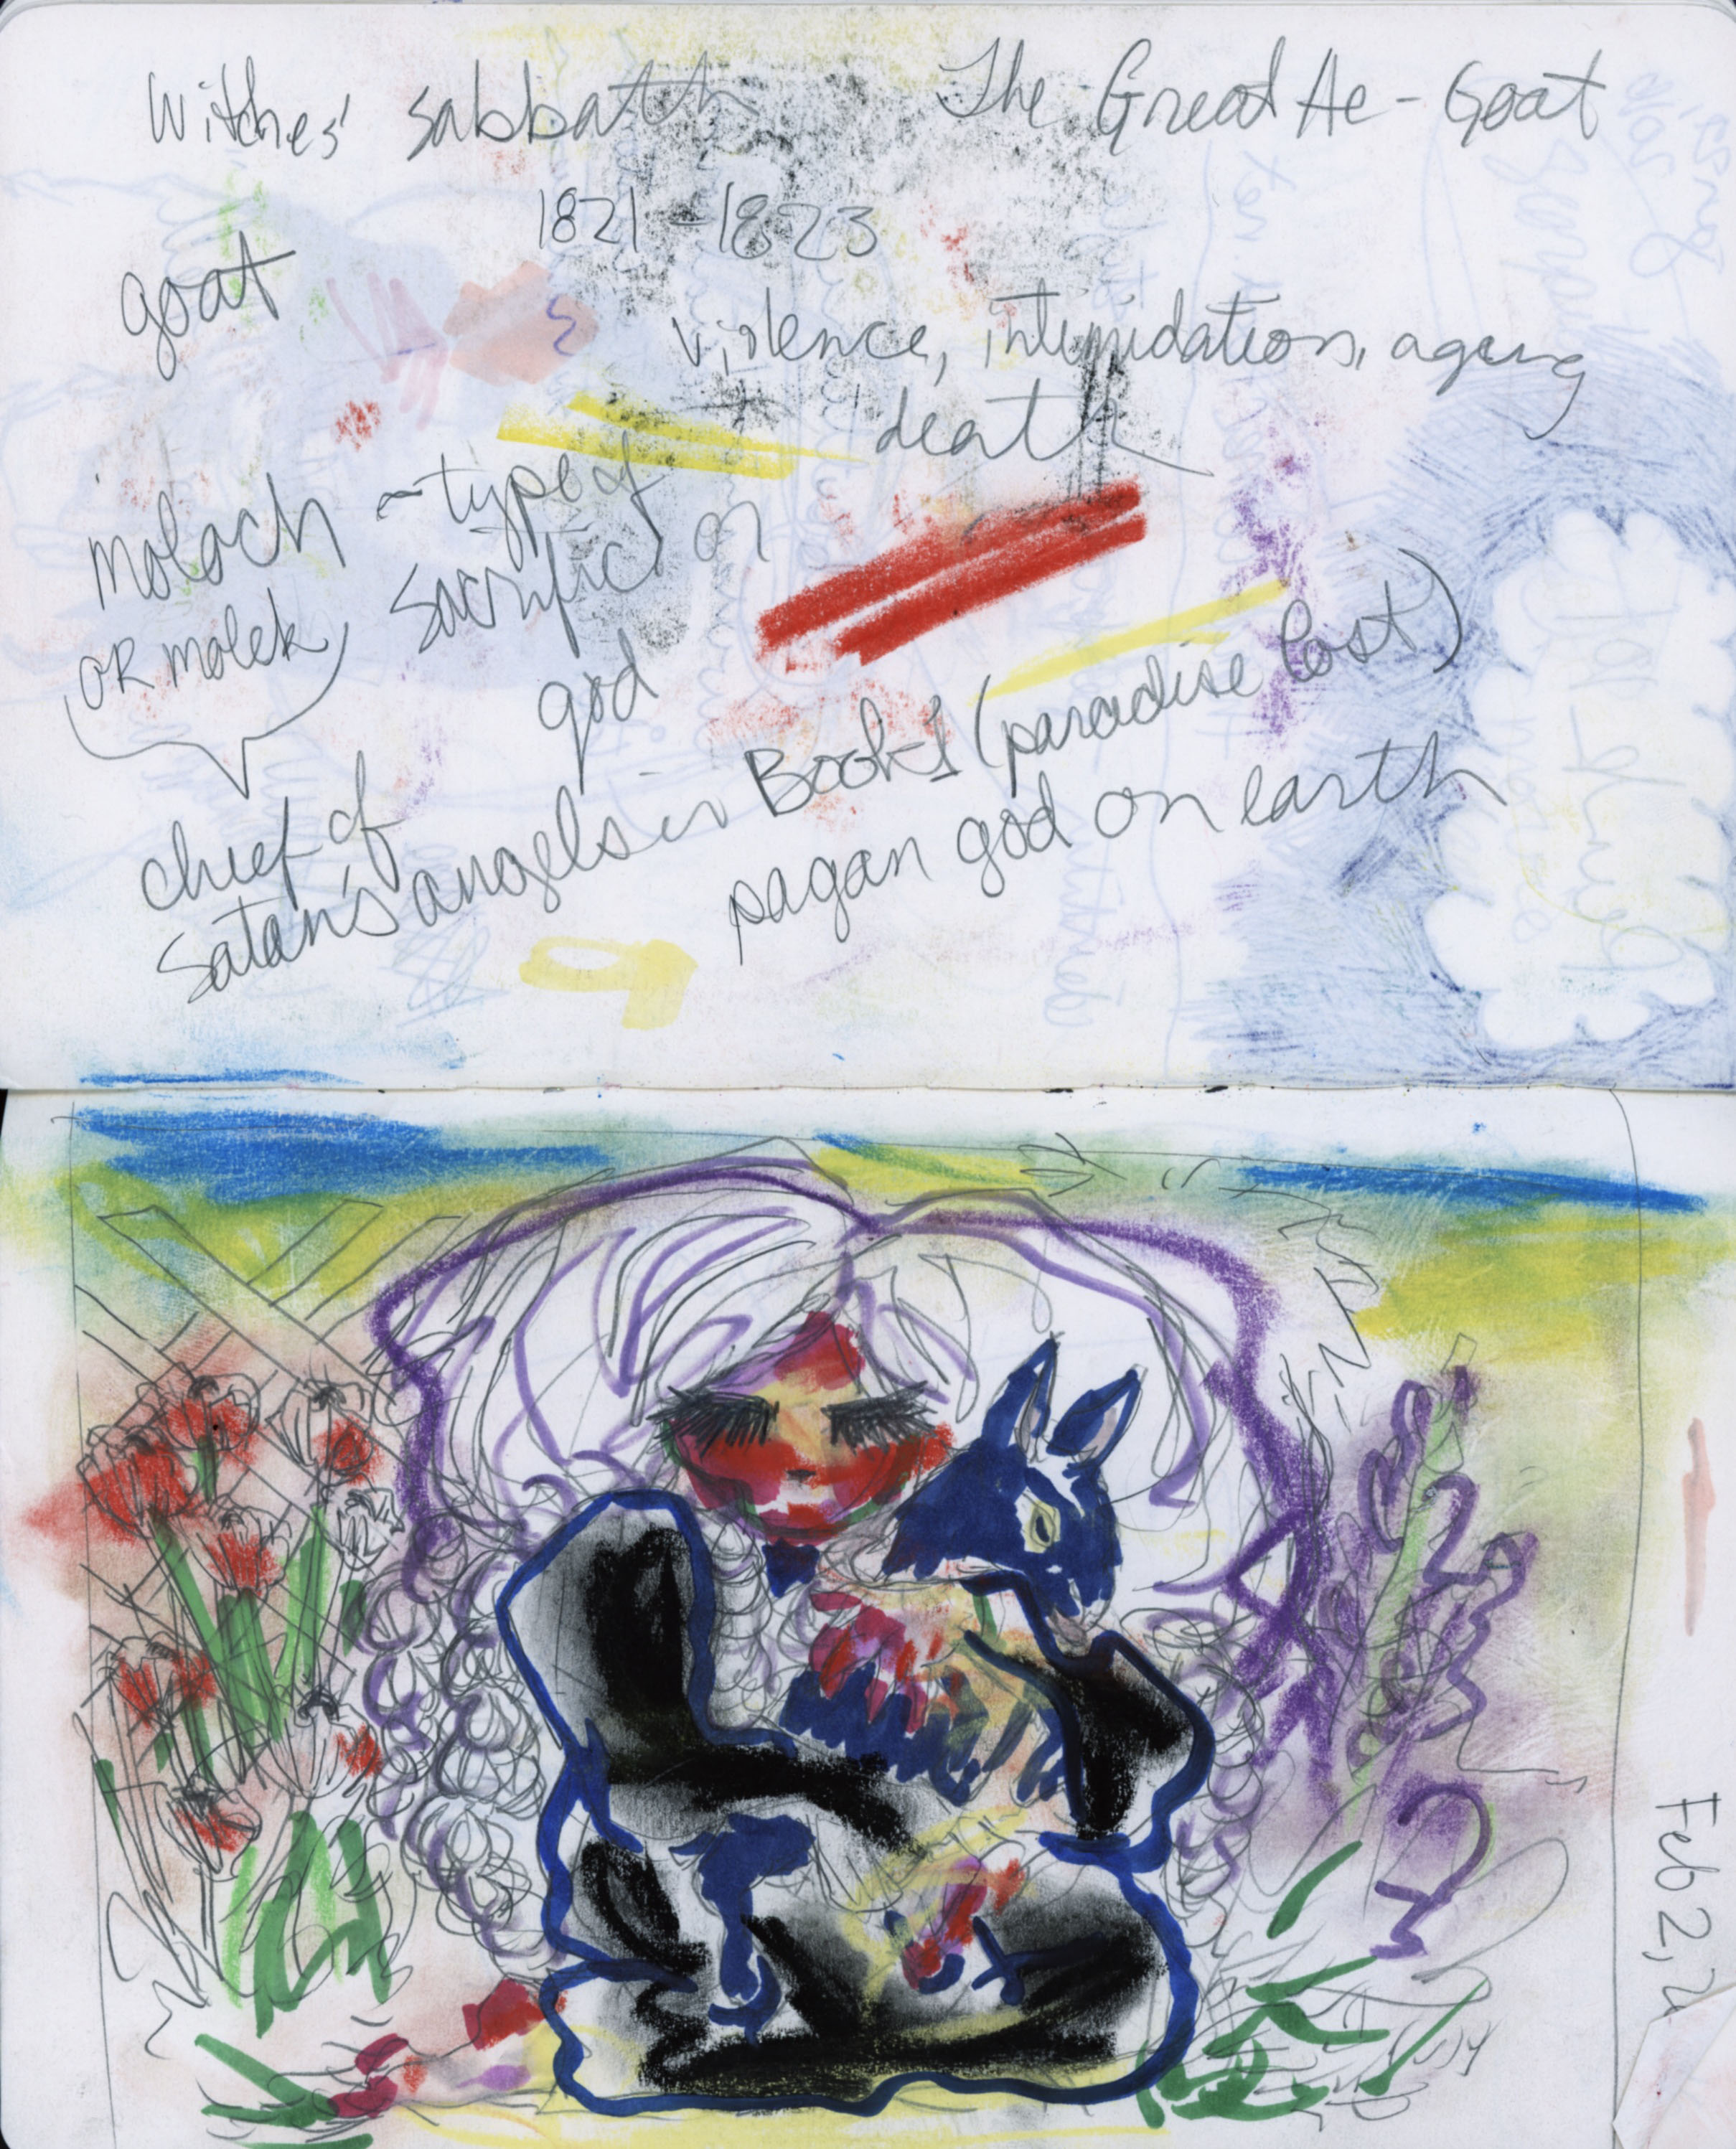 Witches' Sabbath The Great He-Goat
1821-1823
goat
violence, intimidation, aging
death
moloch - type of
or molek sacrifice or
god
chief of
Satan's angels in Book 1 (paradise lost)
pagan god on earth
Feb 2, 2